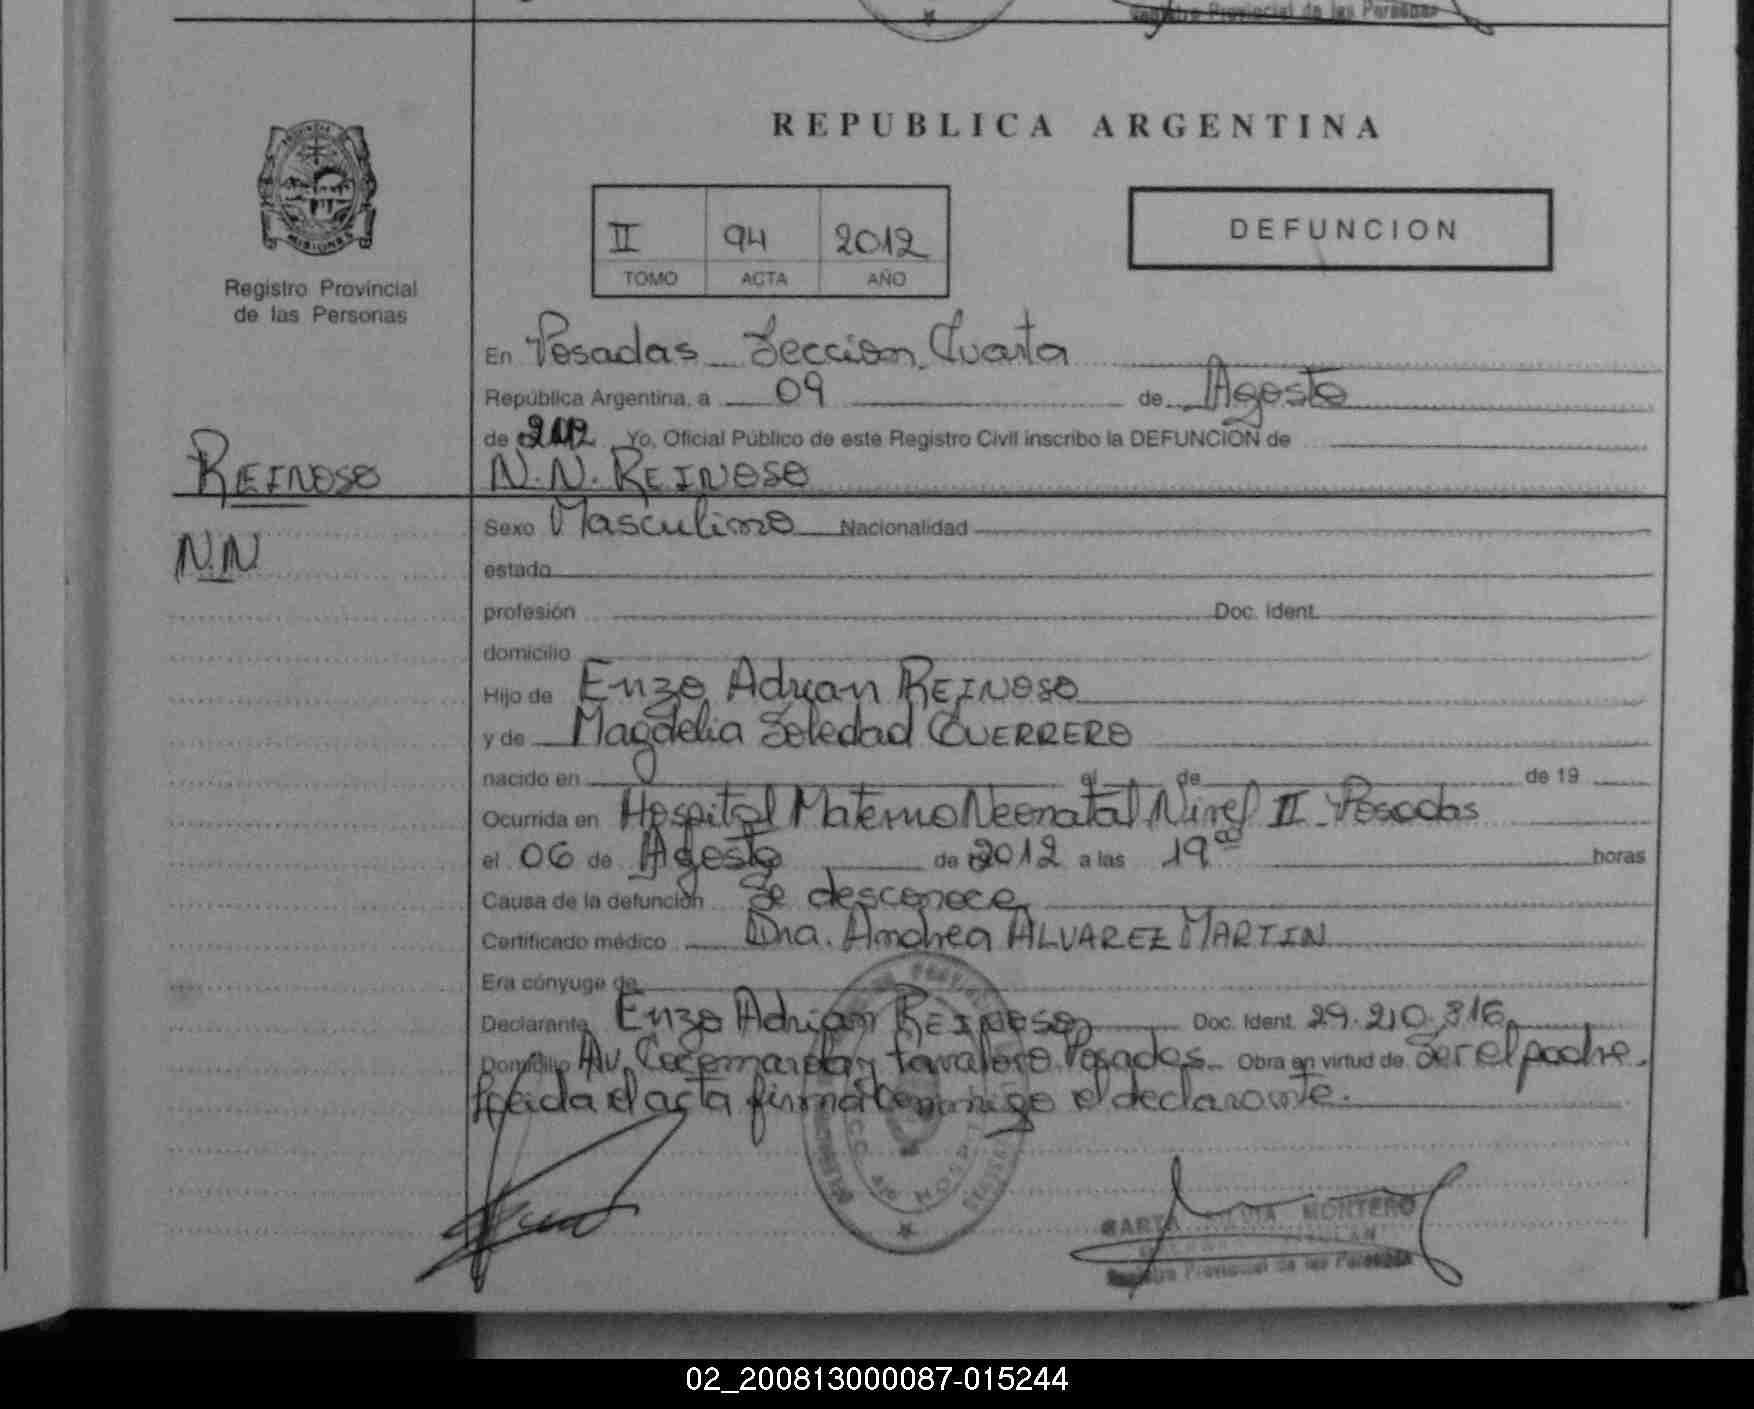 Registro Provincial de las Personas
REPUBLICA ARGENTINA
MISIONES
II 94 2012
TOMO ACTA AÑO
DEFUNCION
Registro Provincial
de las Personas
En Posadas Seccion Cuarta
República Argentina, a 09 de Agosto
de 2012 Yo, Oficial Público de este Registro Civil inscribo la DEFUNCION de
REINOSO
N.N. REINOSO
N.N.
Sexo Masculino Nacionalidad
estado
profesión Doc. Ident.
domicilio
Hijo de Enzo Adrian REINOSO
y de Magdelia Soledad GUERRERO
nacido en el de de 19
Ocurrida en Hospital Materno Neonatal Nivel II - Posadas
el 06 de Agosto de 2012 a las 19 00 horas
Causa de la defunción Se desconoce
Certificado médico Dra. Andrea ALVAREZ MARTIN
Era cónyuge de
Declarante Enzo Adrian REINOSO Doc. Ident. 29.210.316
Domicilio Av. Cocomarola y Posadas Obra en virtud de Ser el padre.
Leida el acta firma conmigo el declarante.
MONTERO
Registro Provincial de las Personas
02_200813000087-015244